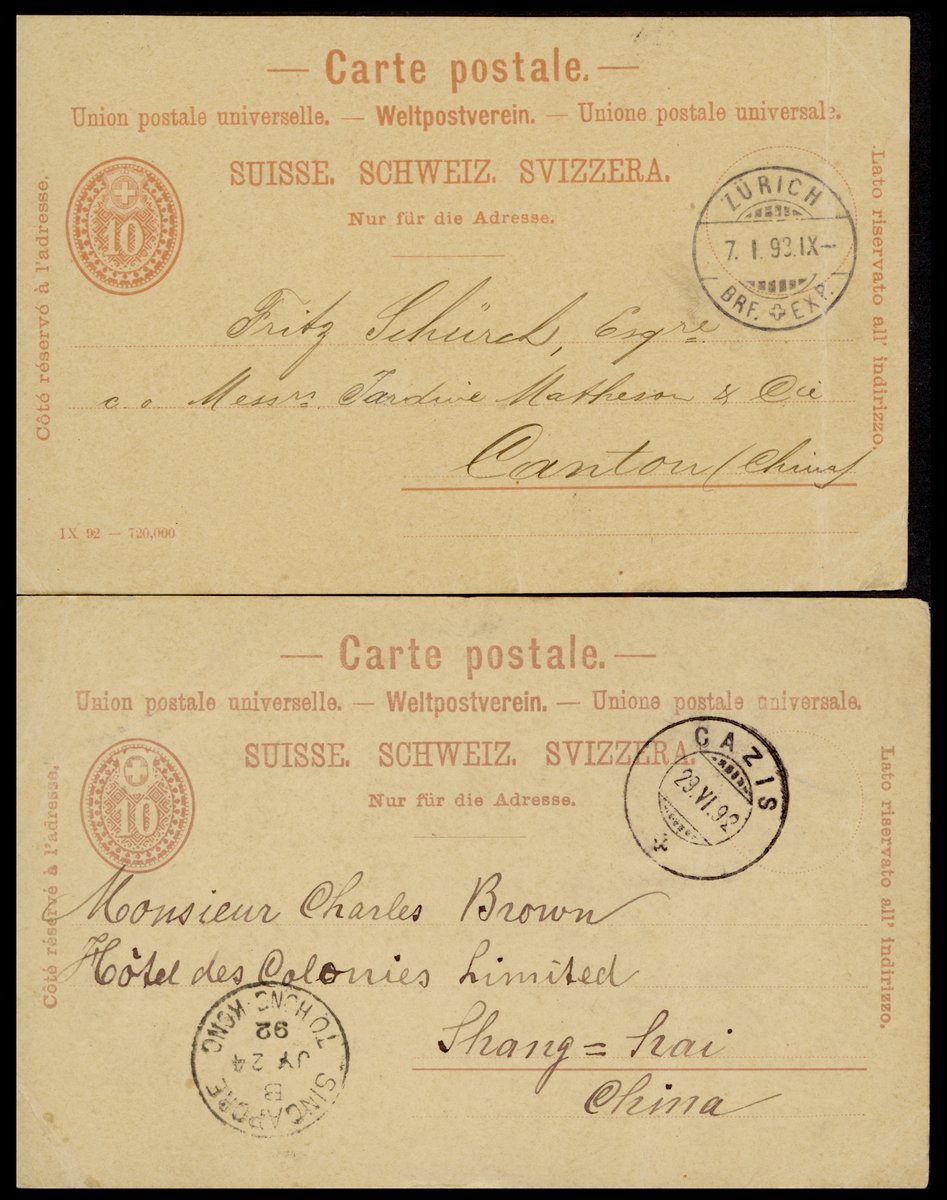 — Carte postale. —
Union postale universelle. — Weltpostverein. — Unione postale universale.
SUISSE. SCHWEIZ. SVIZZERA.
Nur für die Adresse.
Côté réservé à l'adresse.
Lato riservato all' indirizzo.
10
ZÜRICH
7. I. 93. IX—
BRF. EXP.
Fritz Schürch, Esqre
c. o. Messrs. Jardine Matheson & Cie
Canton (China)
IX 92 — 720,000
— Carte postale. —
Union postale universelle. — Weltpostverein. — Unione postale universale.
SUISSE. SCHWEIZ. SVIZZERA.
Nur für die Adresse.
Côté réservé à l'adresse.
Lato riservato all' indirizzo.
10
CAZIS
29. VI. 92
Monsieur Charles Brown
Hôtel des Colonies Limited
Shang=hai
China
SINGAPORE TO HONG-KONG
B
JY 24
92